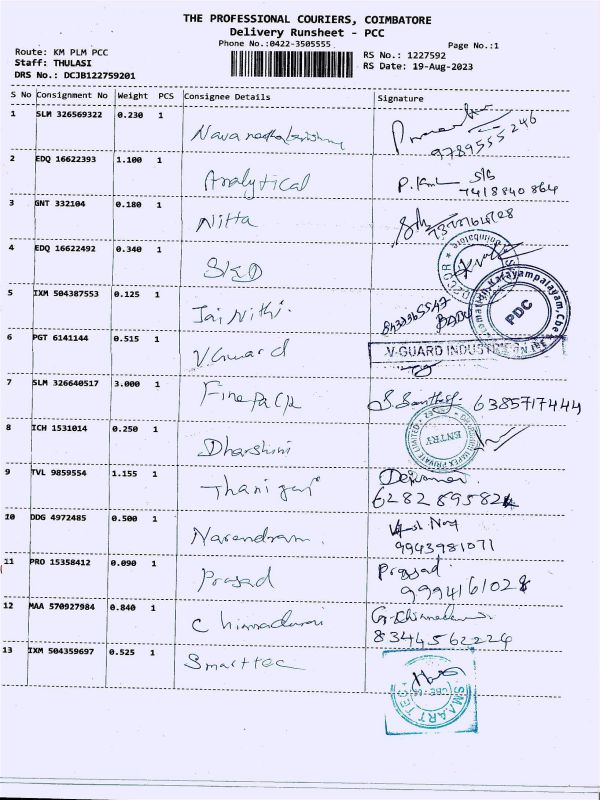 THE PROFESSIONAL COURIERS, COIMBATORE
Delivery Runsheet - PCC
Phone No.:0422-3505555
Page No.:1
Route: KM PLM PCC
Staff: THULASI
DRS No.: DCJB122759201
RS No.: 1227592
RS Date: 19-Aug-2023
S No Consignment No Weight PCS Consignee Details Signature
1 SLM 326569322 0.230 1
9789555246
2 EDQ 16622393 1.100 1 Analytical
7418840864
3 GNT 332104 0.180 1 Nitta
4 EDQ 16622492 0.340 1
5 IXM 504387553 0.125 1 Jai Nithi.
PDC
6 PGT 6141144 0.515 1 V Guard
V-GUARD INDUST
7 SLM 326640517 3.000 1 Fine Pack
6385717444
8 ICH 1531014 0.250 1 Dharshini
ENTRY
9 TVL 9859554 1.155 1
10 DDG 4972485 0.500 1 Narendran.
9943981071
11 PRO 15358412 0.090 1 Prasad
Prasad
12 MAA 570927984 0.840 1 Chinnadurai
8344562224
13 IXM 504359697 0.525 1 Smarttec
SMAART TEC